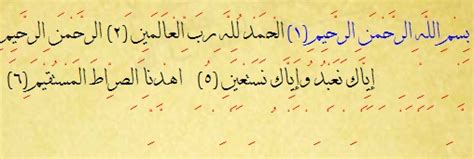 بِسْمِ اللَّهِ الرَّحْمَنِ الرَّحِيمِ (١) الْحَمْدُ للَّهِ رَبِّ الْعَالَمِينَ (٢) الرَّحْمَنِ الرَّحِيمِ
إِيَّاكَ نَعْبُدُ وإِيَّاكَ نَسْتَعِينُ (٥) اهْدِنَا الصِّرَاطَ الْمُسْتَقِيمَ (٦)